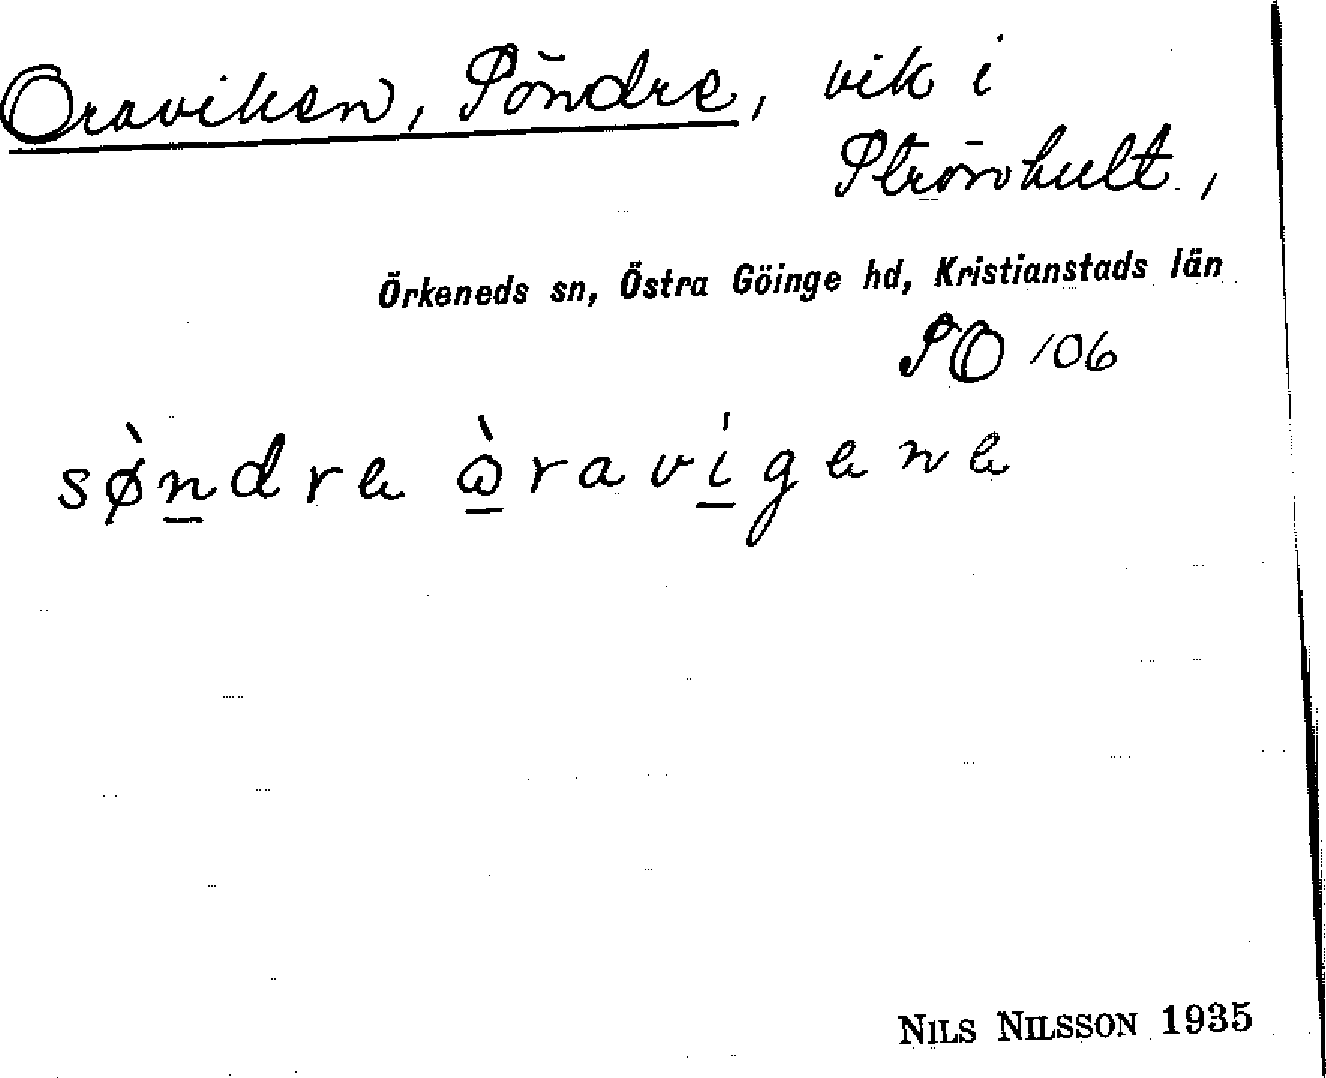 Oraviken, Söndre, vik i
Strönhult,
Örkeneds sn, Östra Göinge hd, Kristianstads län
SO 106
sø̀n̲dre ò̲raví̲gene
NILS NILSSON 1935